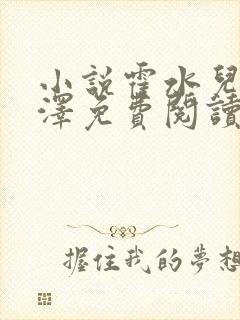 小說霍水兒
澤免費閱讀
握住我的夢想